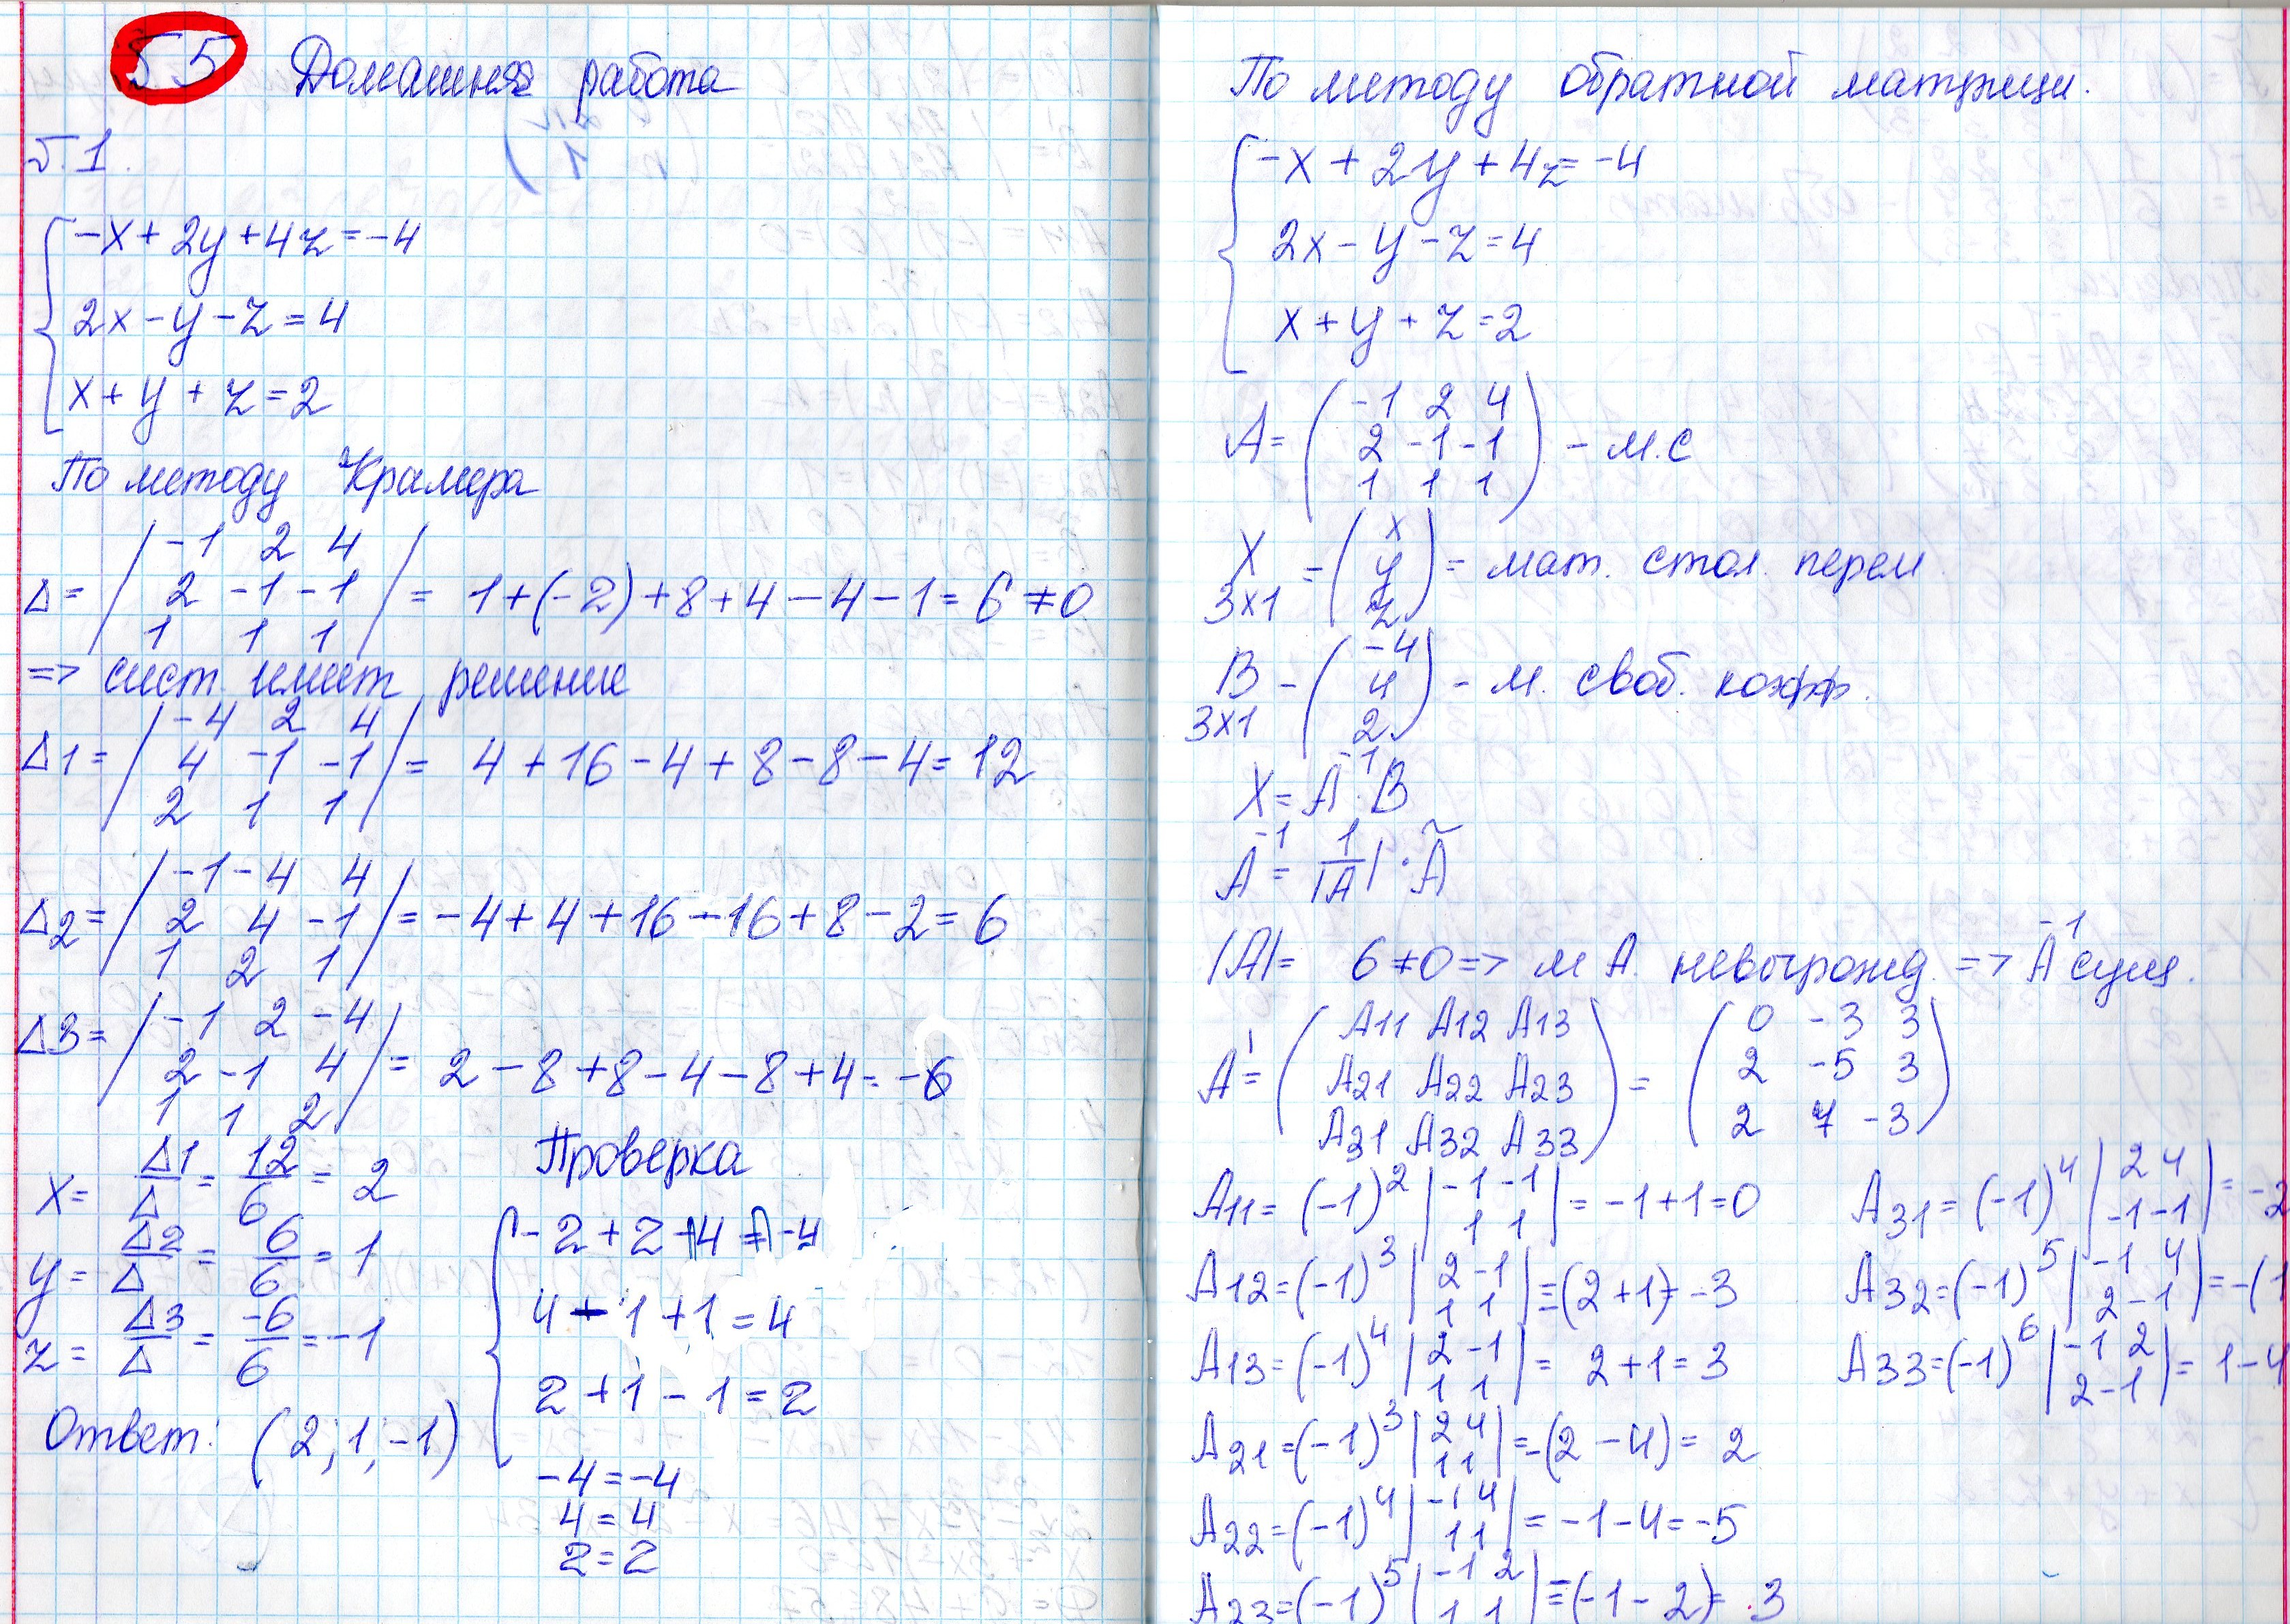 55 Домашняя работа
5.1.
-x + 2y + 4z = -4
2x - y - z = 4
x + y + z = 2
По методу Крамера
-1 2 4
Δ = | 2 -1 -1 | = 1 + (-2) + 8 + 4 - 4 - 1 = 6 ≠ 0
1 1 1
=> сист. имеет решение
-4 2 4
Δ1 = | 4 -1 -1 | = 4 + 16 - 4 + 8 - 8 - 4 = 12
2 1 1
-1 -4 4
Δ2 = | 2 4 -1 | = -4 + 4 + 16 - 16 + 8 - 2 = 6
1 2 1
-1 2 -4
Δ3 = | 2 -1 4 | = 2 - 8 + 8 - 4 - 8 + 4 = -6
1 1 2
x = Δ1/Δ = 12/6 = 2
y = Δ2/Δ = 6/6 = 1
z = Δ3/Δ = -6/6 = -1
Ответ: (2; 1; -1)
Проверка
-2 + 2 - 4 = -4
4 - 1 + 1 = 4
2 + 1 - 1 = 2
-4 = -4
4 = 4
2 = 2
По методу обратной матрици.
-x + 2y + 4z = -4
2x - y - z = 4
x + y + z = 2
-1 2 4
A = ( 2 -1 -1 ) - м.с
1 1 1
x
X 3x1 = ( y ) - мат. стол. перем
z
-4
B 3x1 - ( 4 ) - м. своб. коэфф.
2
X = A⁻¹·B
A⁻¹ = 1/|A| · Ã
|A| = 6 ≠ 0 => м А. невырожд. => A⁻¹ сущ.
A11 A12 A13 0 -3 3
A' = ( A21 A22 A23 ) = ( 2 -5 3 )
A31 A32 A33 2 7 -3
A11 = (-1)² | -1 -1 / 1 1 | = -1 + 1 = 0
A12 = (-1)³ | 2 -1 / 1 1 | = -(2 + 1) = -3
A13 = (-1)⁴ | 2 -1 / 1 1 | = 2 + 1 = 3
A21 = (-1)³ | 2 4 / 1 1 | = -(2 - 4) = 2
A22 = (-1)⁴ | -1 4 / 1 1 | = -1 - 4 = -5
A23 = (-1)⁵ | -1 2 / 1 1 | = -(-1 - 2) = 3
A31 = (-1)⁴ | 2 4 / -1 -1 | = -2
A32 = (-1)⁵ | -1 4 / 2 -1 | = -(1
A33 = (-1)⁶ | -1 2 / 2 -1 | = 1 - 4